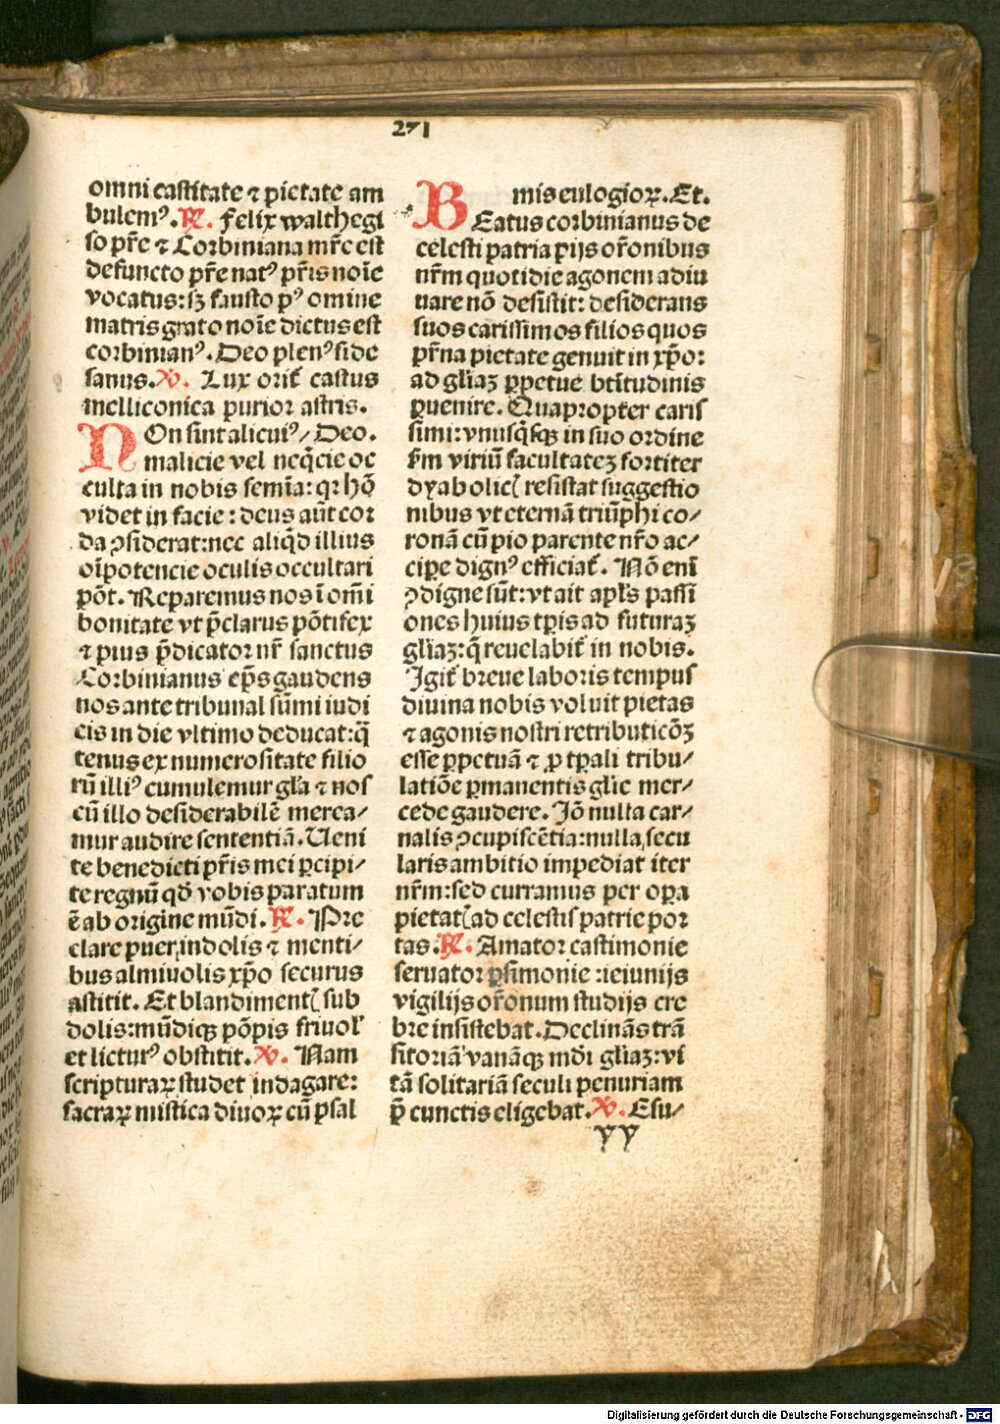 271
omni castitate ⁊ pietate am
bulem⁹. ℟. Felix walthegi
so pr̄e ⁊ Corbiniana mr̄e est
defuncto pr̄e nat⁹ pr̄is noīe
vocatus: sꝫ fausto p⁹ omine
matris grato noīe dictus est
corbinian⁹. Deo plen⁹ fide
sanus. ℣. Lux orit᷑ castus
melliconica purior astris.
NOn sint alicui⁹ / Deo.
malicie vel neq̄cie oc
culta in nobis semīa: qꝛ hō
videt in facie: deus aūt cor
da ꝯsiderat: nec aliq̄d illius
oīpotencie oculis occultari
pōt. Reparemus nos ī om̄i
bonitate vt p̄clarus pōtifex
⁊ pius p̄dicator nr̄ sanctus
Corbinianus ep̄s gaudens
nos ante tribunal sūmi iudi
cis in die vltimo deducat: q̄
tenus ex numerositate filio
rū illi⁹ cumulemur gl̄a ⁊ nos
cū illo desiderabilē merea/
mur audire sententiā. Ueni
te benedicti pr̄is mei ꝑcipi/
te regnū qd̄ vobis paratum
ē ab origine mūdi. ℟. Pre
clare puer indolis ⁊ menti/
bus almiuolis xp̄o securus
astitit. Et blandimentꝭ sub
dolis: mūdiqꝫ pōpis friuol'
et lictur⁹ obstitit. ℣. Nam
scripturaꝝ studet indagare:
sacraꝝ mistica diuoꝝ cū psal
mis eulogioꝝ. Et.
BEatus corbinianus de
celesti patria pijs or̄onibus
nr̄m quotidie agonem adiu
uare nō desistit: desiderans
suos carissimos filios quos
pr̄na pietate genuit in xp̄o:
ad gl̄iaꝫ ꝑpetue bt̄itudinis
ꝑuenire. Quapropter caris
simi: vnusq̄sqꝫ in suo ordine
s̄m viriū facultateꝫ fortiter
dyabolicꝭ resistat suggestio
nibus vt eternā triūphi co/
ronā cū pio parente nr̄o ac/
cipe dign⁹ efficiat᷑. Nō enī
ꝯdigne sūt: vt ait apl̄s passi
ones huius tp̄is ad futuraꝫ
gl̄iaꝫ: q̄ reuelabit᷑ in nobis.
Igit᷑ breue laboris tempus
diuina nobis voluit pietas
⁊ agonis nostri retributicōꝫ
esse ꝑpetuā ⁊ ꝓ tp̄ali tribu/
latiōe ꝑmanentis gl̄ie mer/
cede gaudere. Iō nulla car/
nalis ꝯcupiscētia: nulla secu
laris ambitio impediat iter
nr̄m: sed curramus per oꝑa
pietatꝭ ad celestis patrie por
tas. ℟. Amator castimonie
seruator ꝑsimonie: ieiunijs
vigilijs or̄onum studijs cre
bre insistebat. Declinās trā
sitoriā vanāqꝫ mdi gl̄iaꝫ: vi
tā solitariā seculi penuriam
p̄ cunctis eligebat. ℣. Esu/
yy
Digitalisierung gefördert durch die Deutsche Forschungsgemeinschaft - DFG